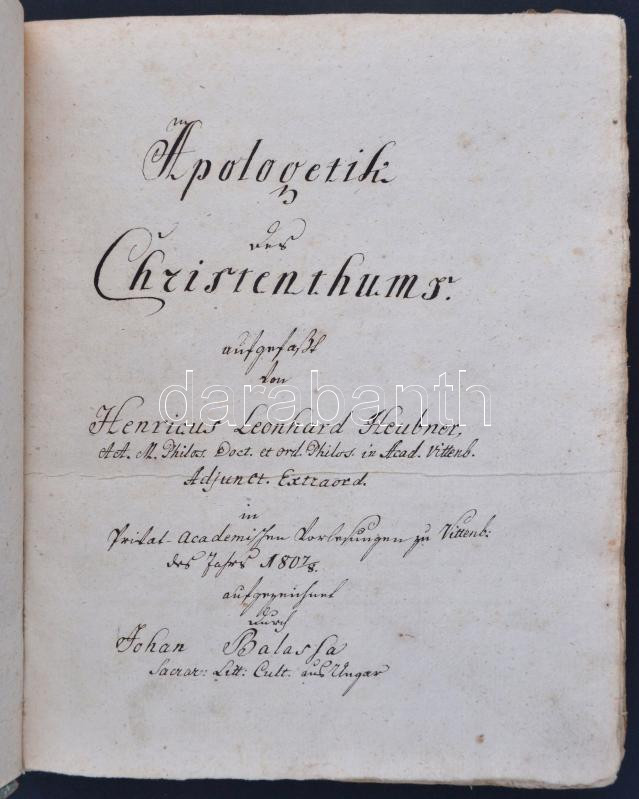 Apologetik
des
Christenthums.
aufgefaßt
von
darabanth
Henricus Leonhard Heubner,
AA. M. Philos. Doct. et ord. Philos. in Acad. Vittenb.
Adjunct. Extraord.
in
Privat-Academischen Vorlesungen zu Vittenb:
des Jahrs 1807/8.
aufgezeichnet
durch
Johan Balassa
Sacrar: Litt: Cult. aus Ungar